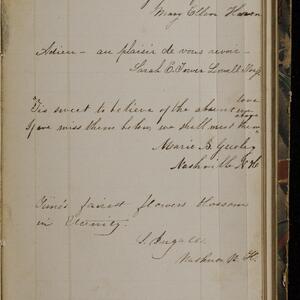 Mary Ellen
Adieu - au plaisir de vous revoir -
Sarah E. Tower Lowell Mass
"Tis sweet to believe of the absent we love
If we miss them below, we shall meet them above
Marie B.
Nashville N. H.
Time's fairest flowers blossom
in Eternity.
S. Ingalls.
Nashua N. H.